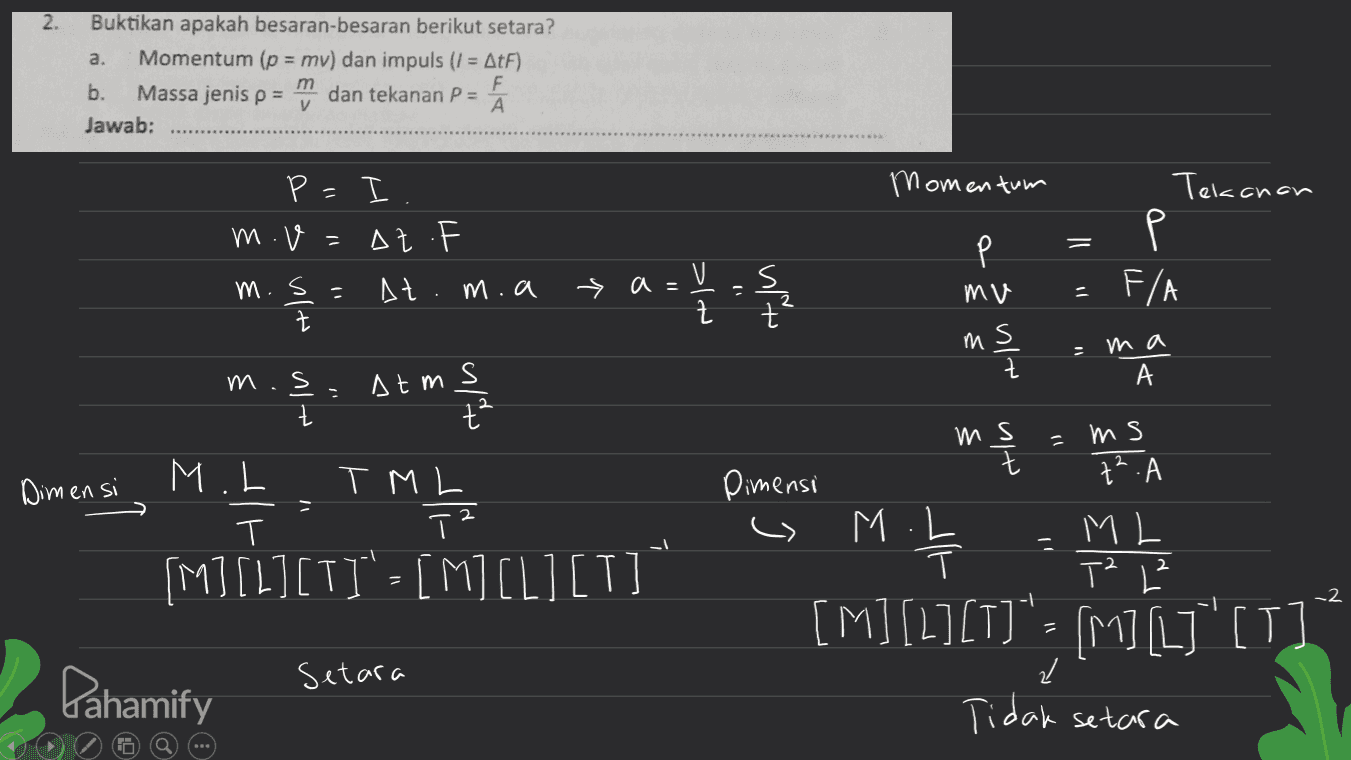 2. Buktikan apakah besaran-besaran berikut setara?
a. Momentum (p = mv) dan impuls (I = ΔtF)
b. Massa jenis ρ = m/v dan tekanan P = F/A
Jawab: ........................................
P = I.
m.v = Δt.F
m. s/t = Δt. m.a → a = v/t = s/t²
m. s/t = Δt m s/t²
Dimensi → M.L/T = T M L/T²
[M][L][T]⁻¹ = [M][L][T]⁻¹
Setara
Momentum Tekanan
p = P
mv = F/A
m s/t = m a/A
m s/t = m s/t².A
Dimensi
↳ M.L/T = M L/T² L²
[M][L][T]⁻¹ = [M][L]⁻¹[T]⁻²
Tidak setara
Pahamify